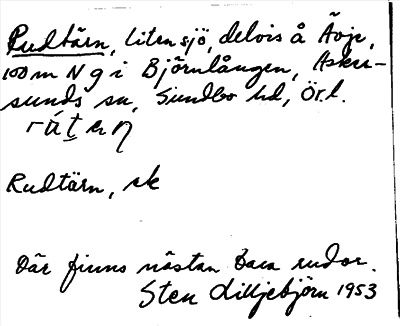 Rudtärn, liten sjö, delvis å Åvje,
100 m N g i Björnlången, Asker-
sunds sn, Sundbo hd, Ör. l.
Rudtärn, sk
Där finns nästan bara rudor.
Sten Lilljebjörn 1953